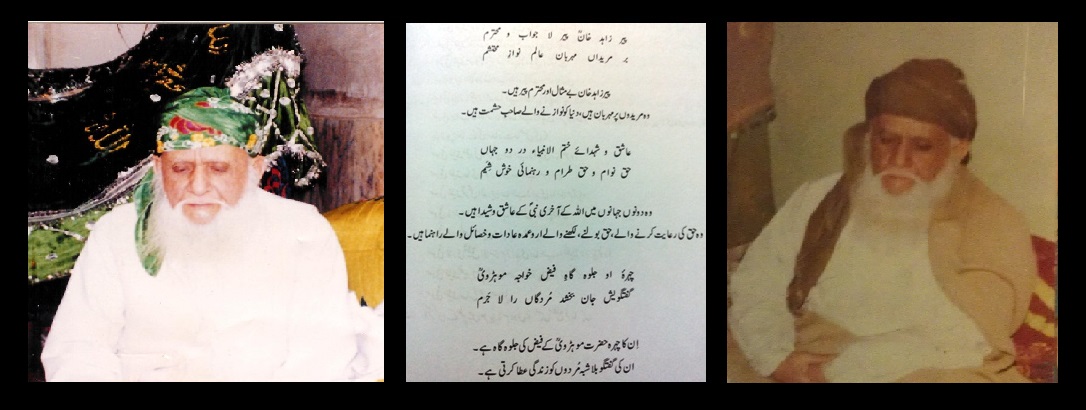 پیر زاہد خانؒ پیر لا جواب و محترم
بر مریداں مہربان عالم نواز محتشم
پیر زاہد خان بے مثال اور محترم پیر ہیں۔
وہ مریدوں پر مہربان ہیں، دنیا کو نوازنے والے صاحب حشمت ہیں۔
عاشق و شہدائے ختم الانبیاء در دو جہاں
حق نوام و حق طرام و رہنمائی خوش شیَم
وہ دونوں جہانوں میں اللہ کے آخری نبیؐ کے عاشق و شیدا ہیں۔
وہ حق کی رعایت کرنے والے، حق بولنے، لکھنے والے اور عمدہ عادات و خصائل والے راہنما ہیں۔
چہرۂ او جلوہ گاہِ فیض خواجہ موہڑویؒ
گفتگویش جان بخشد مُردگاں را لا جَرَم
اِن کا چہرہ حضرت موہڑویؒ کے فیض کی جلوہ گاہ ہے۔
ان کی گفتگو بلاشبہ مُردوں کو زندگی عطا کرتی ہے۔